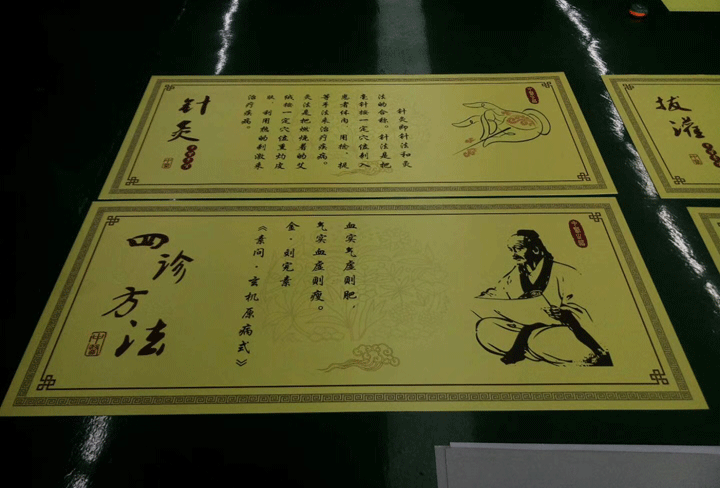 针灸
针灸即针法和灸
法的合称。针法是把
毫针按一定穴位刺入
患者体内,用捻、提
等手法来治疗疾病。
灸法是把燃烧着的艾
绒按一定穴位熏灼皮
肤,利用热的刺激来
治疗疾病。
拔灌
四诊方法
中医
血实气虚则肥,
气实血虚则瘦。
金·刘完素
《素问·玄机原病式》